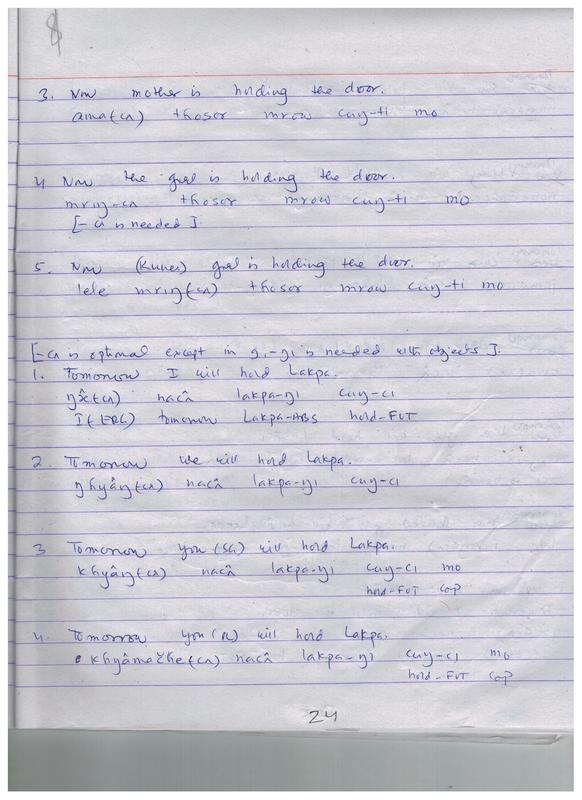 3. Now mother is holding the door.
ama(ca) thosor mrow cuŋ-ti mo
4 Now the girl is holding the door.
mriŋ-ca thosor mrow cuŋ-ti mo
[-ca is needed].
5. Now (Kunes) girl is holding the door.
lele mriŋ(ca) thosor mrow cuŋ-ti mo
[-ca is optional except in -ŋi is needed with objects].
1. Tomorrow I will hold Lakpa.
nacâ lakpa-ŋi cuŋ-ci
I(ERG) tomorrow Lakpa-ABS hold-FUT
2. Tomorrow we will hold Lakpa.
ŋhyâŋ(ca) nacâ lakpa-ŋi cuŋ-ci
3 Tomorrow you (SG) will hold Lakpa.
khyâŋ(ca) nacâ lakpa-ŋi cuŋ-ci mo
hold-FUT cop
4. Tomorrow you (PL) will hold Lakpa.
khyâmačhe(ca) nacâ lakpa-ŋi cuŋ-ci mo
hold-FUT cop
24